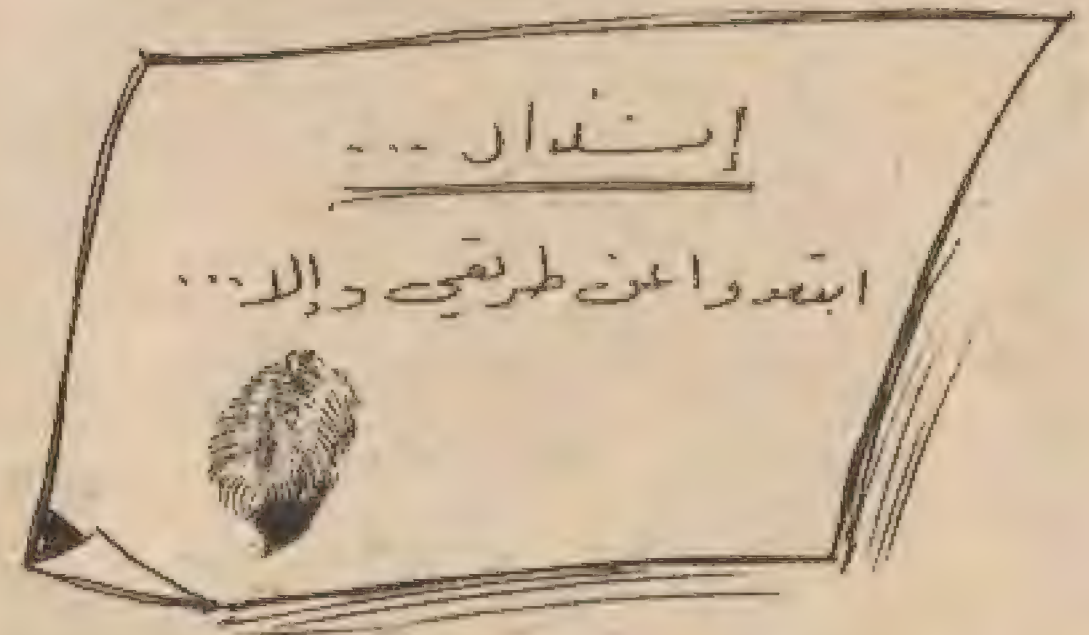 إنذار ...
ابتعدوا عن طريقي وإلا ...